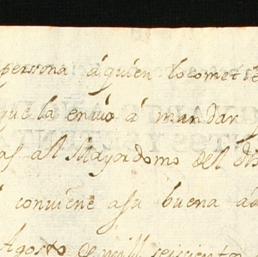 persona á quien lo comete
que la envio á mandar
as al Mayordomo del
conviene asu buena
Agosto de mill seiscientos